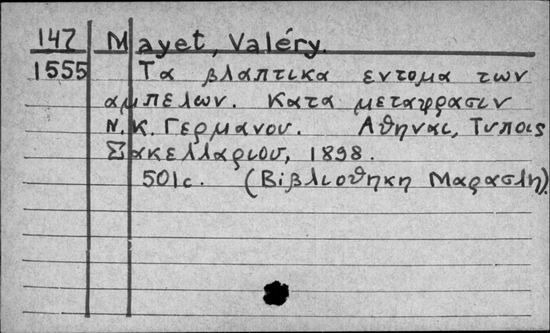 147 Mayet, Valéry.
1555 Τα βλαπτικα εντομα των
αμπελων. Κατα μεταφρασιν
Ν. Κ. Γερμανου. Αθηναι, Τυποις
Σακελλαριου, 1898.
501c. (Βιβλιοθηκη Μαρασλη).